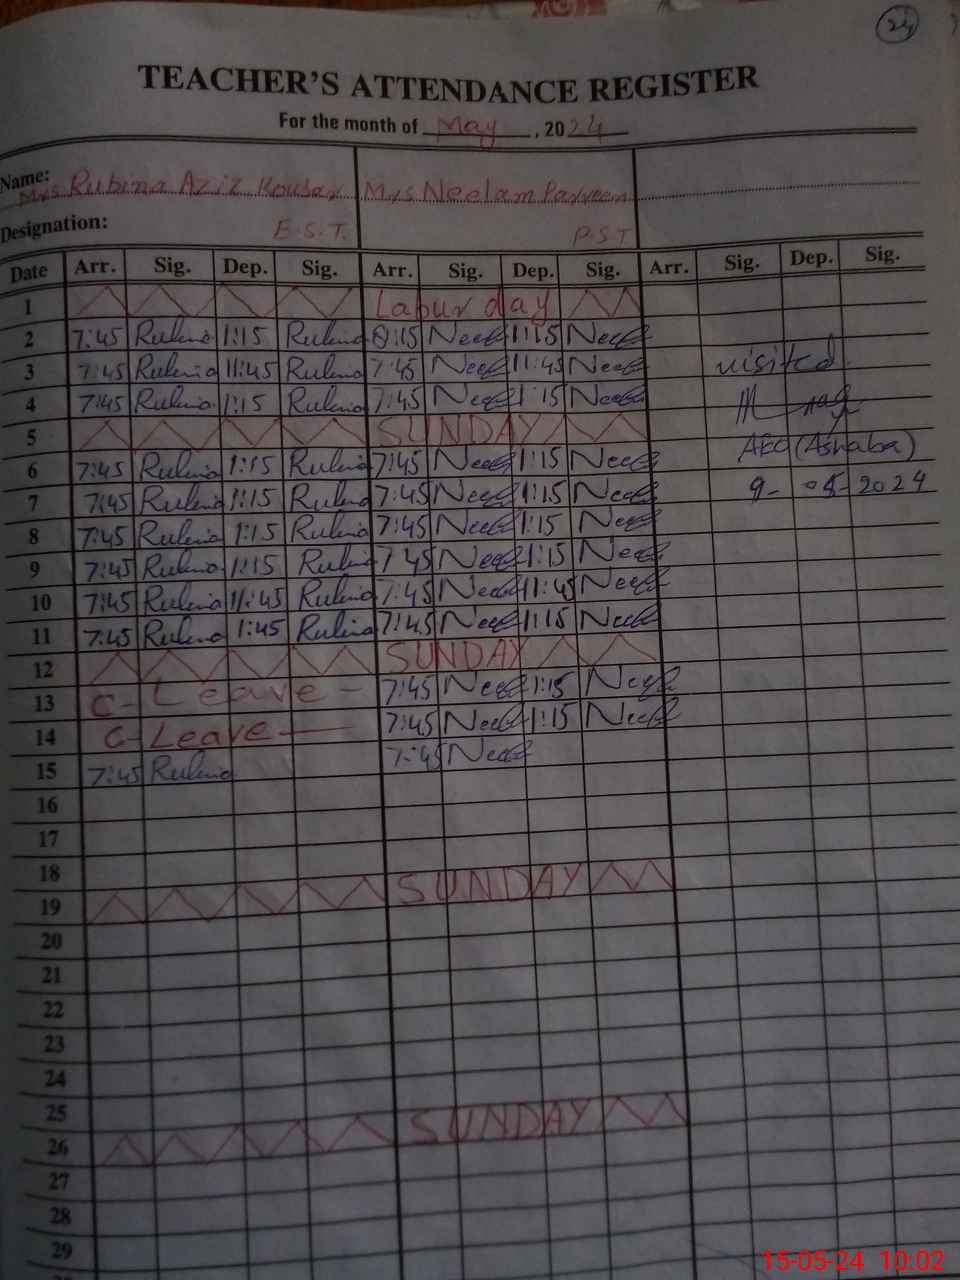 24
TEACHER'S ATTENDANCE REGISTER
For the month of May, 2024
Name: Mrs Rubina Aziz Kousar Mrs Neelam Parveen
Designation: E.S.T. P.S.T
Date Arr. Sig. Dep. Sig. Arr. Sig. Dep. Sig. Arr. Sig. Dep. Sig.
1 Labur day
2 7:45 Rubina 1:15 Rubina 8:15 Neel 1:15 Neel
3 7:45 Rubina 11:45 Rubina 7:45 Neel 11:45 Neel visited
4 7:45 Rubina 1:15 Rubina 7:45 Neel 1:15 Neel
5 SUNDAY AEO (Ashaba)
6 7:45 Rubina 1:15 Rubina 7:45 Neel 1:15 Neel 9-05-2024
7 7:45 Rubina 1:15 Rubina 7:45 Neel 1:15 Neel
8 7:45 Rubina 1:15 Rubina 7:45 Neel 1:15 Neel
9 7:45 Rubina 1:15 Rubina 7 45 Neel 1:15 Neel
10 7:45 Rubina 11:45 Rubina 7:45 Neel 11:45 Neel
11 7:45 Rubina 1:45 Rubina 7:45 Neel 1:15 Neel
12 SUNDAY
13 C- Leave - 7:45 Neel 1:15 Neel
14 C-Leave - 7:45 Neel 1:15 Neel
15 7:45 Rubina 7:45 Neel
16
17
18
19 SUNDAY
20
21
22
23
24
25
26 SUNDAY
27
28
29
15-05-24 10:02